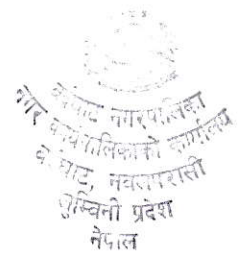 नगरपालिका
नगर कार्यपालिकाको कार्यालय
नवलपरासी
लुम्बिनी प्रदेश
नेपाल